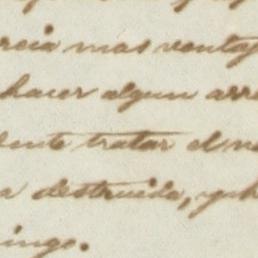 rcia mas ventaj
hacer algun arre
ente tratar el n
a destruida, y
ingo.